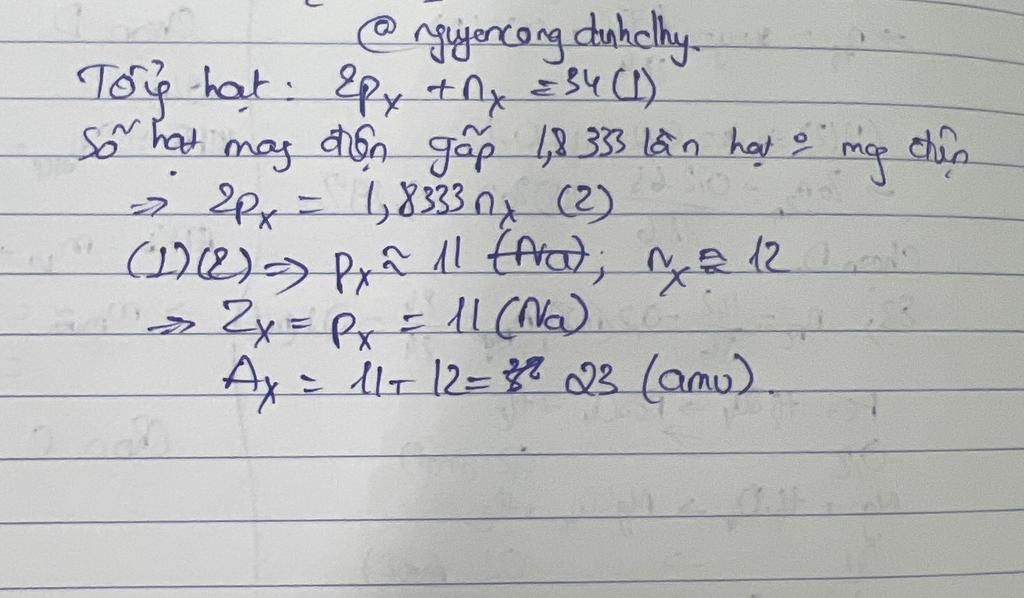 @ nguyencong duhclhy.
Tổng hạt: 2pₓ + nₓ = 34 (1)
Số hạt mang điện gấp 1,8333 lần hạt o mg điện
=> 2pₓ = 1,8333 nₓ (2)
(1)(2) => pₓ ≈ 11 (Na); nₓ ≈ 12
=> Zₓ = pₓ = 11 (Na)
Aₓ = 11 + 12 = 23 (amu).